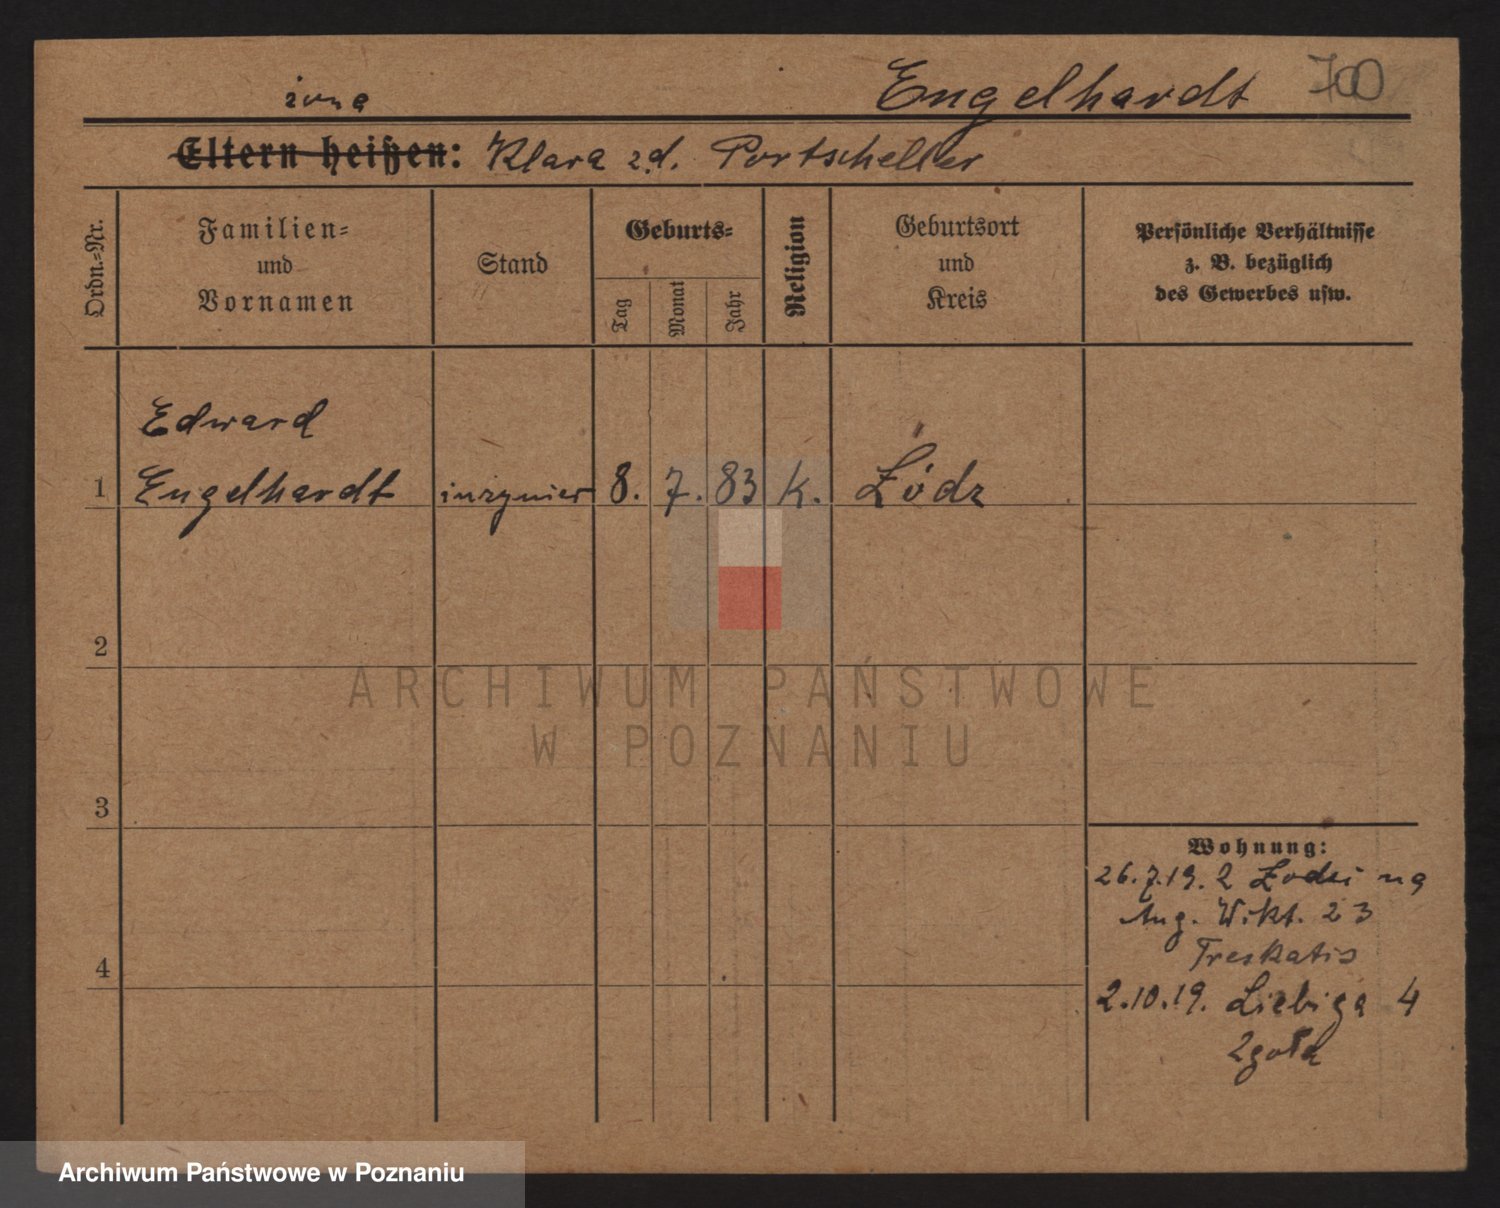 żona Engelhardt 700
Eltern heißen: Klara zd. Portscheller
Ordn.-Nr.
Familien-
und
Vornamen
Stand
Geburts-
Tag
Monat
Jahr
Religion
Geburtsort
und
Kreis
Persönliche Verhältnisse
z. B. bezüglich
des Gewerbes usw.
Edward
1 Engelhardt inżynier 8. 7. 83 k. Łódz
2
ARCHIWUM PAŃSTWOWE
W POZNANIU
3
Wohnung:
26.7.19. z Łodzi na
Aug. Wikt. 23
4
2.10.19. Liebiga 4
Archiwum Państwowe w Poznaniu